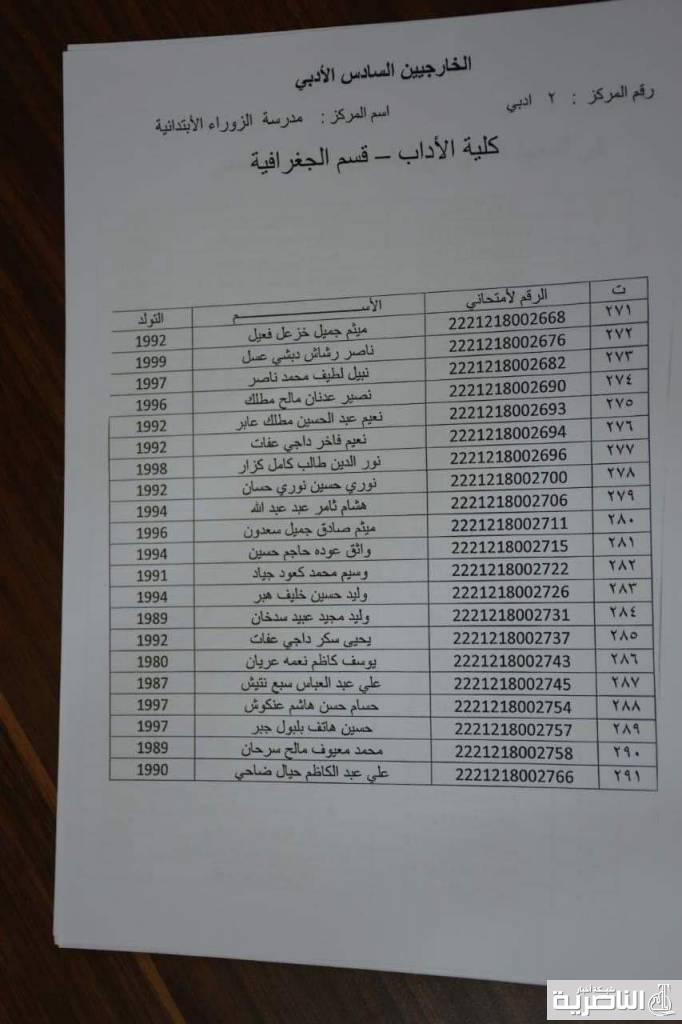 الخارجيين السادس الأدبي
رقم المركز : ٢ ادبي اسم المركز : مدرسة الزوراء الأبتدائية
كلية الأداب – قسم الجغرافية
ت الرقم لأمتحاني الأســـــــم التولد
٢٧١ 2221218002668 ميثم جميل خزعل فعيل 1992
٢٧٢ 2221218002676 ناصر رشاش دبشي عسل 1999
٢٧٣ 2221218002682 نبيل لطيف محمد ناصر 1997
٢٧٤ 2221218002690 نصير عدنان مالح مطلك 1996
٢٧٥ 2221218002693 نعيم عبد الحسين مطلك عابر 1992
٢٧٦ 2221218002694 نعيم فاخر داجي عفات 1992
٢٧٧ 2221218002696 نور الدين طالب كامل كزار 1998
٢٧٨ 2221218002700 نوري حسين نوري حسان 1992
٢٧٩ 2221218002706 هشام ثامر عبد عبد الله 1994
٢٨٠ 2221218002711 ميثم صادق جميل سعدون 1996
٢٨١ 2221218002715 واثق عوده حاجم حسين 1994
٢٨٢ 2221218002722 وسيم محمد كعود جياد 1991
٢٨٣ 2221218002726 وليد حسين خليف هبر 1994
٢٨٤ 2221218002731 وليد مجيد عبيد سدخان 1989
٢٨٥ 2221218002737 يحيى سكر داجي عفات 1992
٢٨٦ 2221218002743 يوسف كاظم نعمه عريان 1980
٢٨٧ 2221218002745 علي عبد العباس سبع نتيش 1987
٢٨٨ 2221218002754 حسام حسن هاشم عنكوش 1997
٢٨٩ 2221218002757 حسين هاتف بلبول جبر 1997
٢٩٠ 2221218002758 محمد معيوف مالح سرحان 1989
٢٩١ 2221218002766 علي عبد الكاظم حيال ضاحي 1990
شبكة أخبار
الناصرية